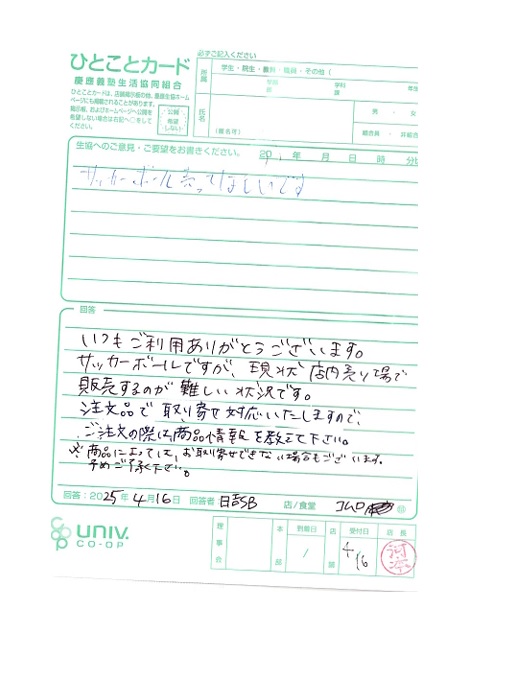 ひとことカード
慶應義塾生活協同組合
ひとことカードは、店舗掲示板の他、慶應生協ホーム
ページにも掲載されることがあります。
掲示板、およびホームページへ公開を
希望しない場合は右記へ○をして
ください。
公開
希望
しない
必ずご記入ください
所属
学生・院生・教員・職員・その他(
学科
年
氏名
(匿名可)
男 ・ 女
組合員 ・ 非組合
生協へのご意見・ご要望をお書きください。 年 月 日 時 分
サッカーボール売ってほしいです
回答
いつもご利用ありがとうございます。
サッカーボールですが、現状店内売り場で
販売するのが難しい状況です。
注文品で取り寄せ対応いたしますので、
ご注文の際は商品情報を教えて下さい。
※商品によっては、お取り寄せできない場合もございます。
予めご了承下さい。
回答:2025年4月16日 回答者 日吉SB 店/食堂 ㊞
UNIV.
CO-OP
理事会
本部
到着日
/
店
受付日
4/16
店長